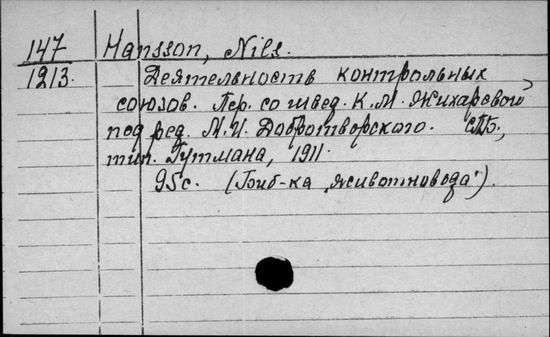 147 Hansson, Nils.
1213. Деятельность контрольных
союзов. Пер. со швед. К.М. Жихаревой
под ред. М.И. Добротворского. СПБ.,
тип. Гутмана, 1911.
95с. (Биб-ка "Животновода").